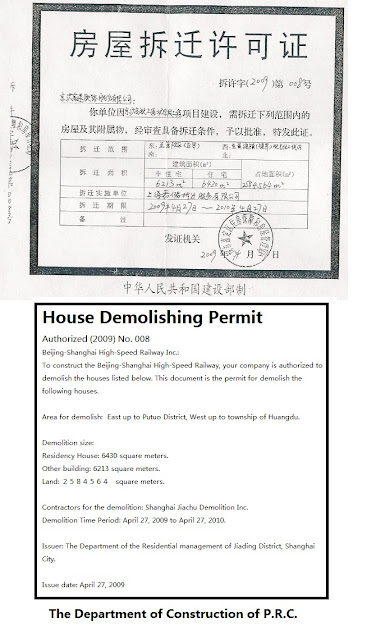 房屋拆迁许可证
拆许字(2009)第008号
你单位因 项目建设，需拆迁下列范围内的
房屋及其附属物，经审查具备拆迁条件，予以批准，特发此证。
拆迁范围
建筑面积(m²)
拆迁面积 非住宅 住宅 占地面积(m²)
6213 m² 6430 m² 258456.4 m²
拆迁实施单位
拆迁期限 2009年4月27日～2010年4月27日
备注
发证机关
2009年4月 日
中华人民共和国建设部制
House Demolishing Permit
Authorized (2009) No. 008
Beijing-Shanghai High-Speed Railway Inc.:
To construct the Beijing-Shanghai High-Speed Railway, your company is authorized to
demolish the houses listed below. This document is the permit for demolish the
following houses.
Area for demolish: East up to Putuo District, West up to township of Huangdu.
Demolition size:
Residency House: 6430 square meters.
Other building: 6213 square meters.
Land: 2 5 8 4 5 6 4 square meters.
Contractors for the demolition: Shanghai Jiachu Demolition Inc.
Demolition Time Period: April 27, 2009 to April 27, 2010.
Issuer: The Department of the Residential management of Jiading District, Shanghai
City.
Issue date: April 27, 2009
The Department of Construction of P.R.C.